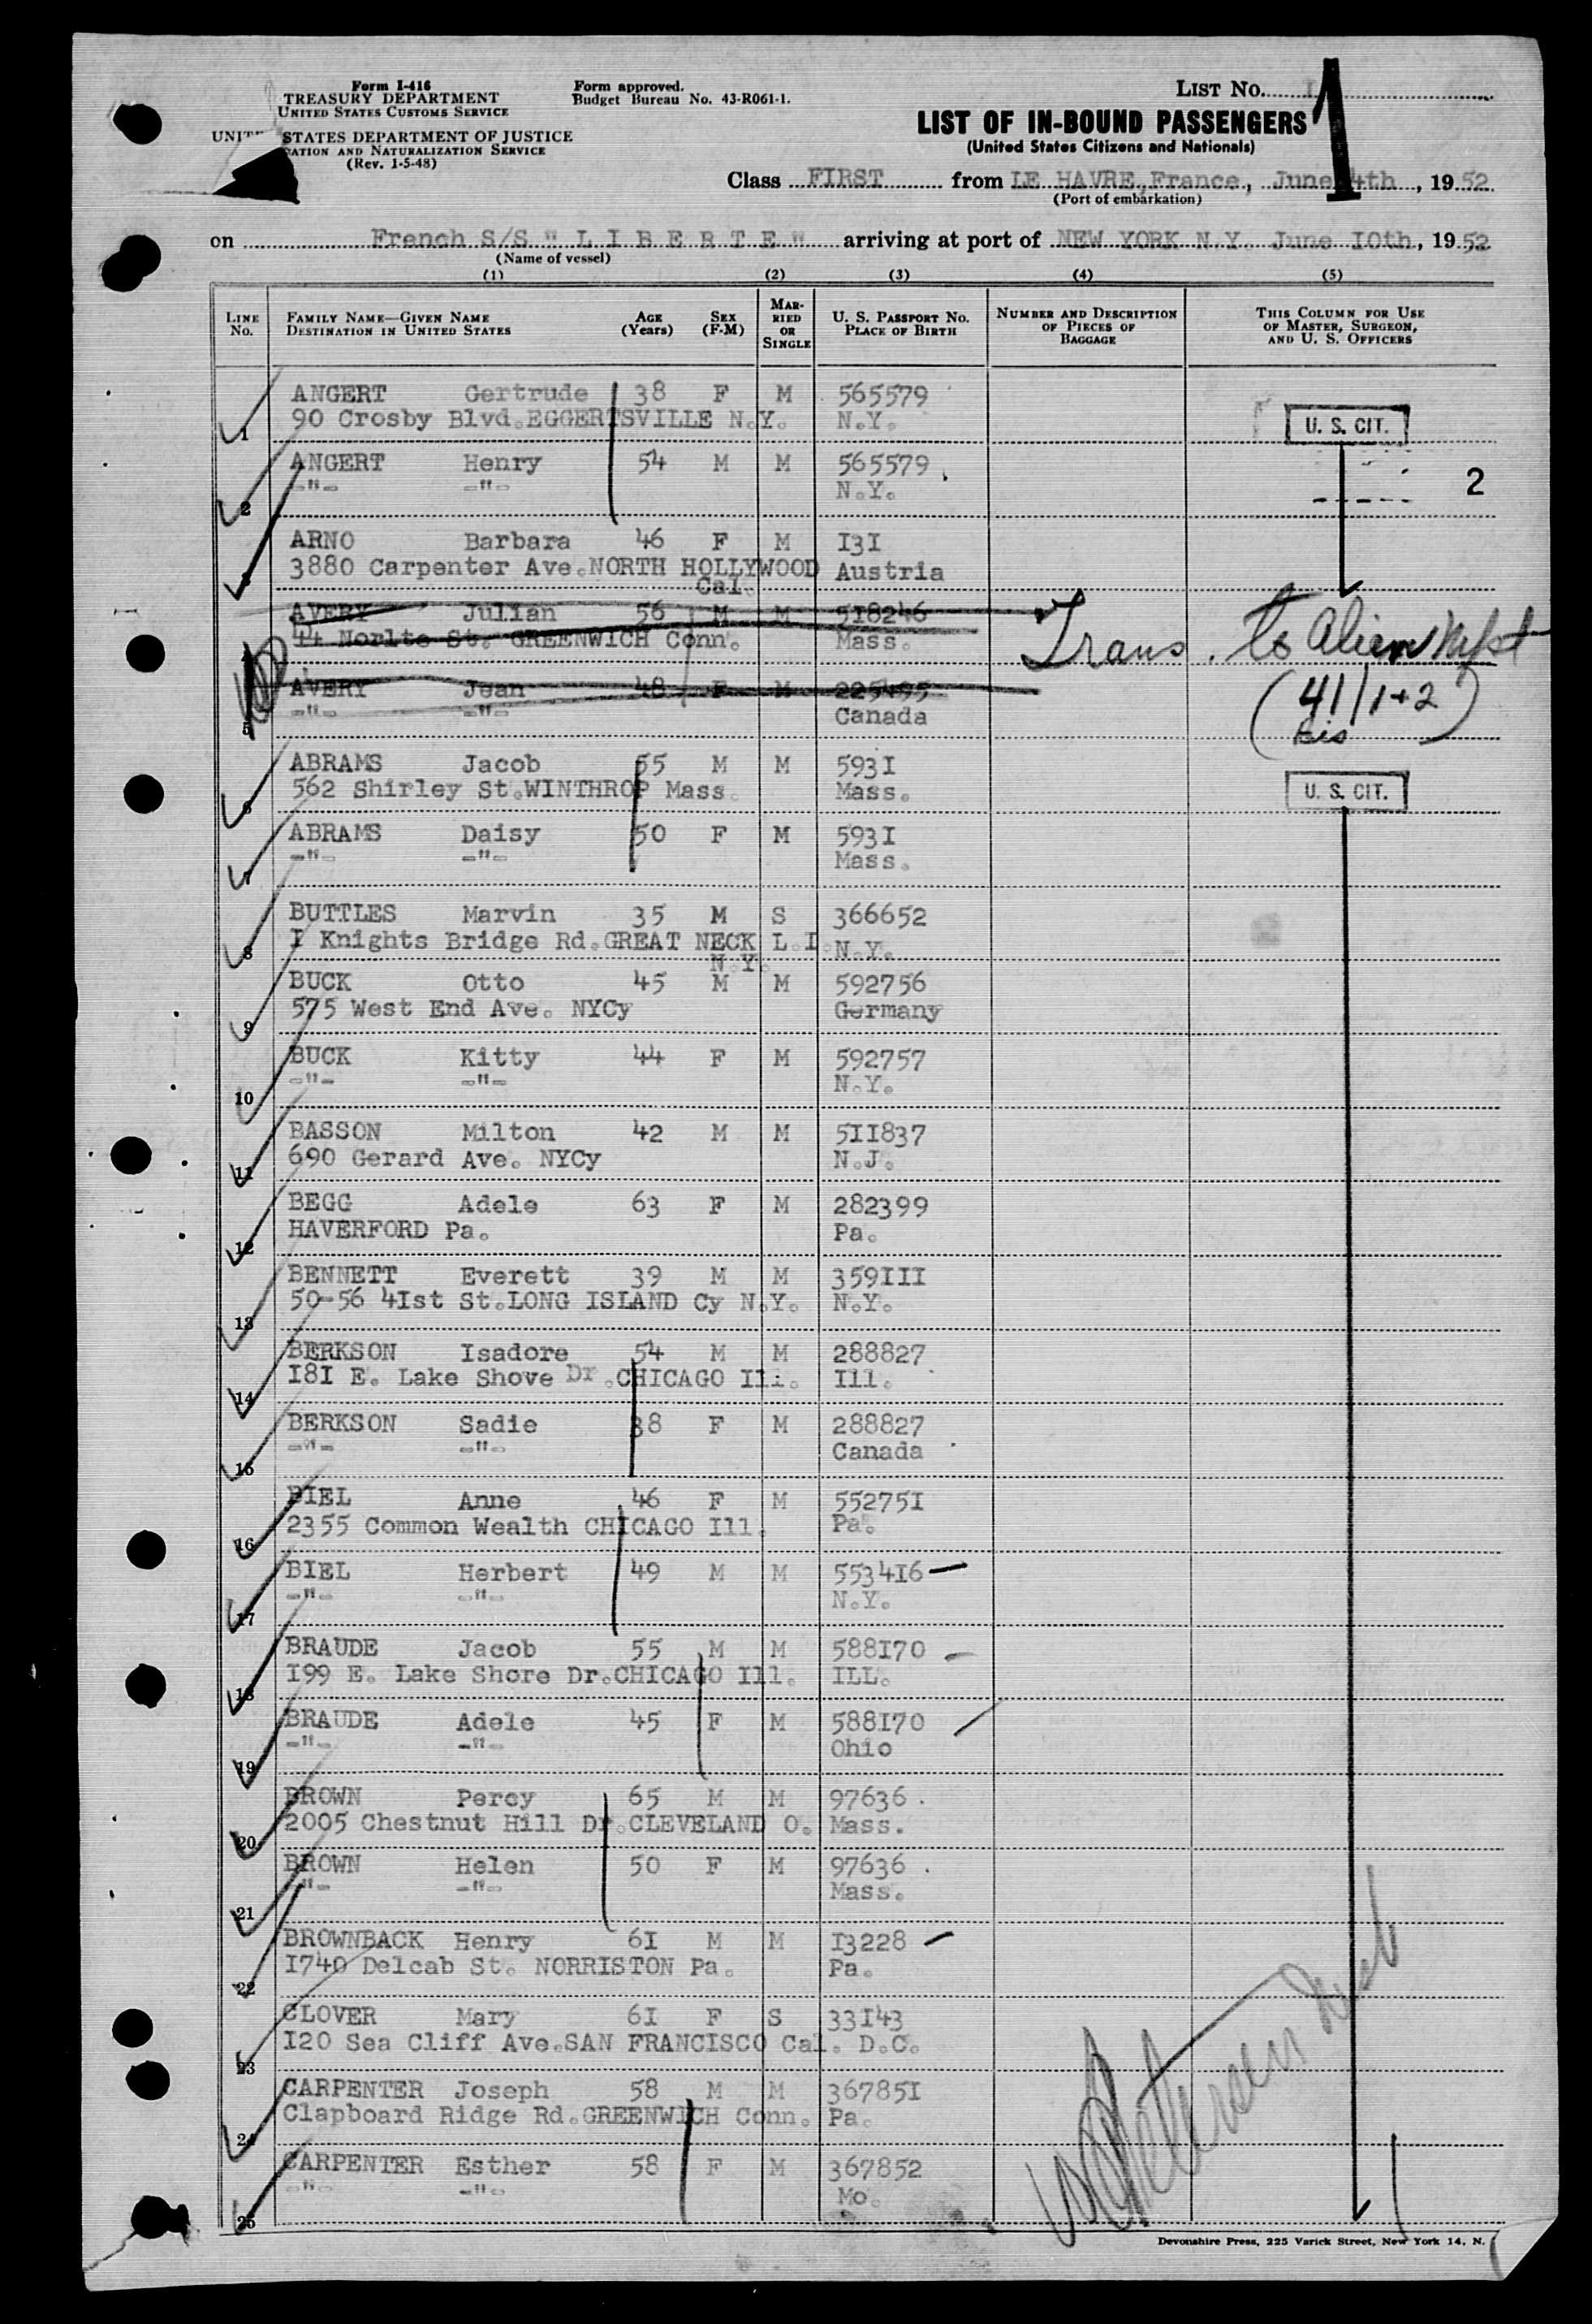 Form I-416
TREASURY DEPARTMENT
UNITED STATES CUSTOMS SERVICE
STATES DEPARTMENT OF JUSTICE
AND NATURALIZATION SERVICE
(Rev. 1-5-48)
Form approved.
Budget Bureau No. 43-R061-1.
LIST No. 1
LIST OF IN-BOUND PASSENGERS
(United States Citizens and Nationals)
Class FIRST from LE HAVRE, France, June 4th, 1952
(Port of embarkation)
on French S/S " L I B E R T E " arriving at port of NEW YORK N.Y. June IOth, 1952
(Name of vessel)
(1) (2) (3) (4) (5)
LINE No.
FAMILY NAME—GIVEN NAME
DESTINATION IN UNITED STATES
AGE (Years)
SEX (F-M)
MARRIED OR SINGLE
U. S. PASSPORT No.
PLACE OF BIRTH
NUMBER AND DESCRIPTION OF PIECES OF BAGGAGE
THIS COLUMN FOR USE OF MASTER, SURGEON, AND U. S. OFFICERS
1 ANGERT Gertrude 38 F M 565579
90 Crosby Blvd.EGGERTSVILLE N.Y. N.Y.
U. S. CIT.
2 ANGERT Henry 54 M M 565579
-"- -"- N.Y.
2
ARNO Barbara 46 F M I3I
3880 Carpenter Ave.NORTH HOLLYWOOD Cal. Austria
AVERY Julian 56 M M 518246
44 Norlte St. GREENWICH Conn. Mass.
Trans. to Alien Mfst
5 AVERY Jean 48 F M 225495
-"- -"- Canada
(41/1+2)
bis
6 ABRAMS Jacob 55 M M 593I
562 Shirley St.WINTHROP Mass. Mass.
U. S. CIT.
7 ABRAMS Daisy 50 F M 593I
-"- -"- Mass.
8 BUTTLES Marvin 35 M S 366652
I Knights Bridge Rd.GREAT NECK L.I. N.Y. N.Y.
9 BUCK Otto 45 M M 592756
575 West End Ave. NYCy Germany
10 BUCK Kitty 44 F M 592757
-"- -"- N.Y.
11 BASSON Milton 42 M M 5II837
690 Gerard Ave. NYCy N.J.
12 BEGG Adele 63 F M 282399
HAVERFORD Pa. Pa.
13 BENNETT Everett 39 M M 359III
50-56 4Ist St.LONG ISLAND Cy N.Y. N.Y.
14 BERKSON Isadore 54 M M 288827
I8I E. Lake Shove Dr.CHICAGO Ill. Ill.
15 BERKSON Sadie 38 F M 288827
-"- -"- Canada
16 BIEL Anne 46 F M 55275I
2355 Common Wealth CHICAGO Ill. Pa.
17 BIEL Herbert 49 M M 5534I6
-"- -"- N.Y.
18 BRAUDE Jacob 55 M M 588I70
I99 E. Lake Shore Dr.CHICAGO Ill. ILL.
19 BRAUDE Adele 45 F M 588I70
-"- -"- Ohio
20 BROWN Percy 65 M M 97636
2005 Chestnut Hill Dr.CLEVELAND O. Mass.
21 BROWN Helen 50 F M 97636
-"- -"- Mass.
22 BROWNBACK Henry 6I M M I3228
I740 Delcab St. NORRISTON Pa. Pa.
23 CLOVER Mary 6I F S 33I43
I20 Sea Cliff Ave.SAN FRANCISCO Cal. D.C.
24 CARPENTER Joseph 58 M M 36785I
Clapboard Ridge Rd.GREENWICH Conn. Pa.
25 CARPENTER Esther 58 F M 367852
-"- -"- Mo.
Devonshire Press, 225 Varick Street, New York 14, N.